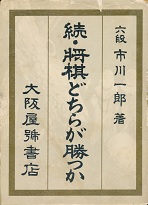 六段 市川一郎 著
続・将棋どちらが勝つか
大阪屋號書店